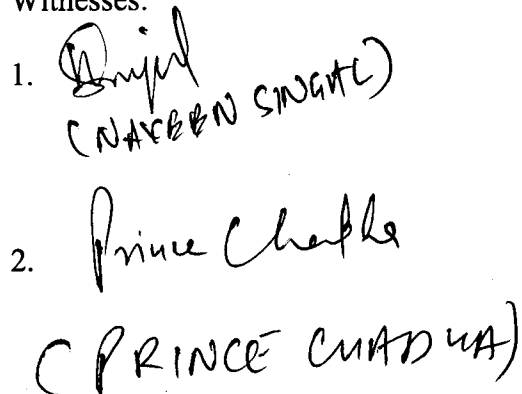 Witnesses:
1.
(NAVEEN SINGHL)
2. Prince Chadha
(PRINCE CHADHA)